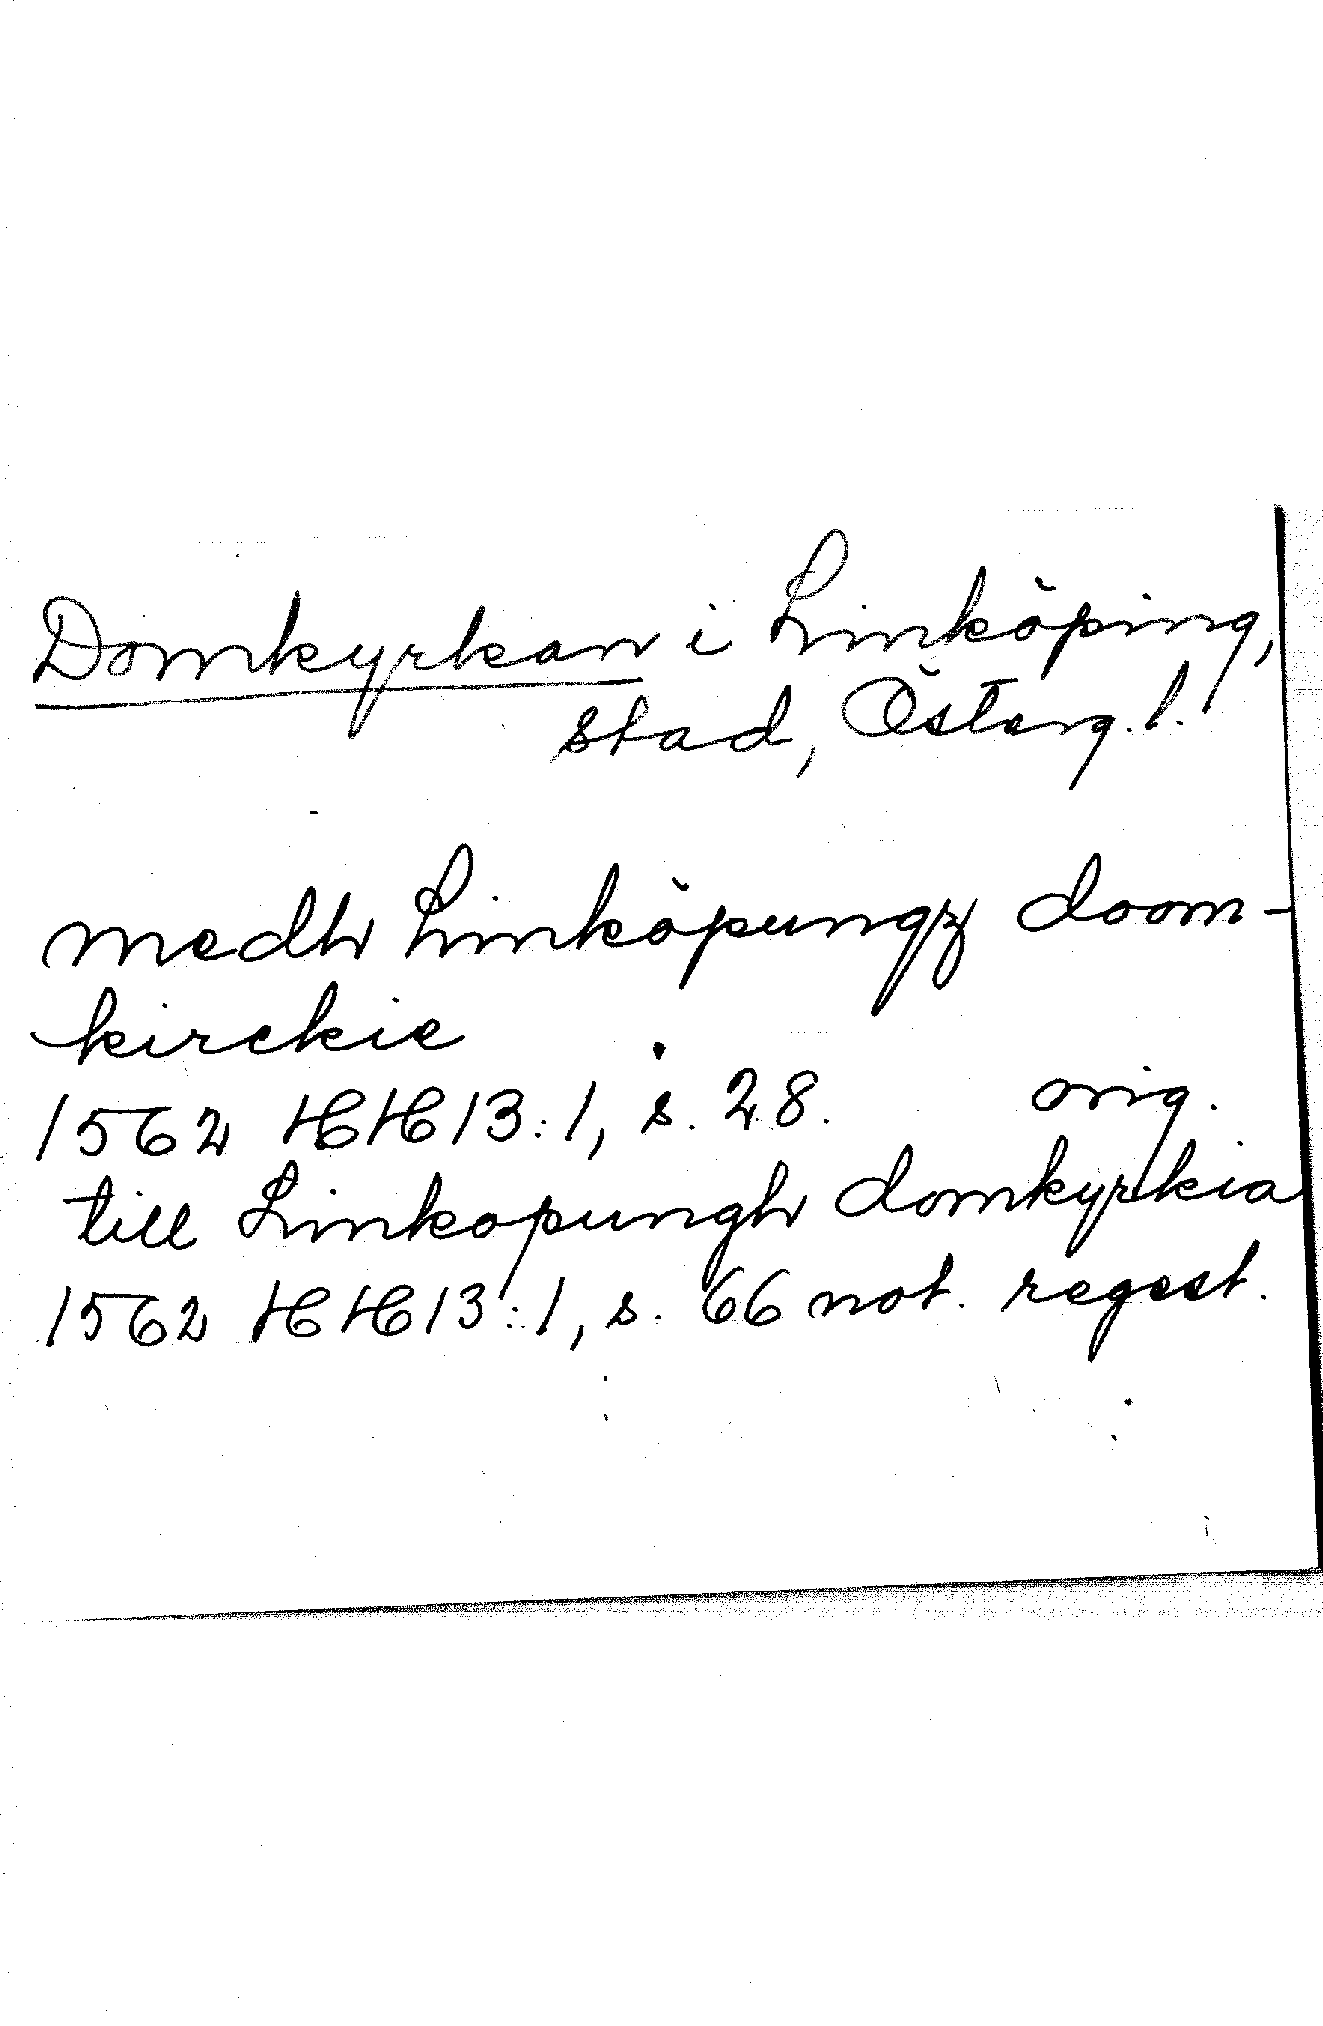 Domkyrkan i Linköping,
stad, Österg. l.
medh Linköpungz doom-
kirckie
1562 HH 13:1, s. 28. orig.
till Linkopungh domkyrkia
1562 HH 13:1, s. 66 not. regest.